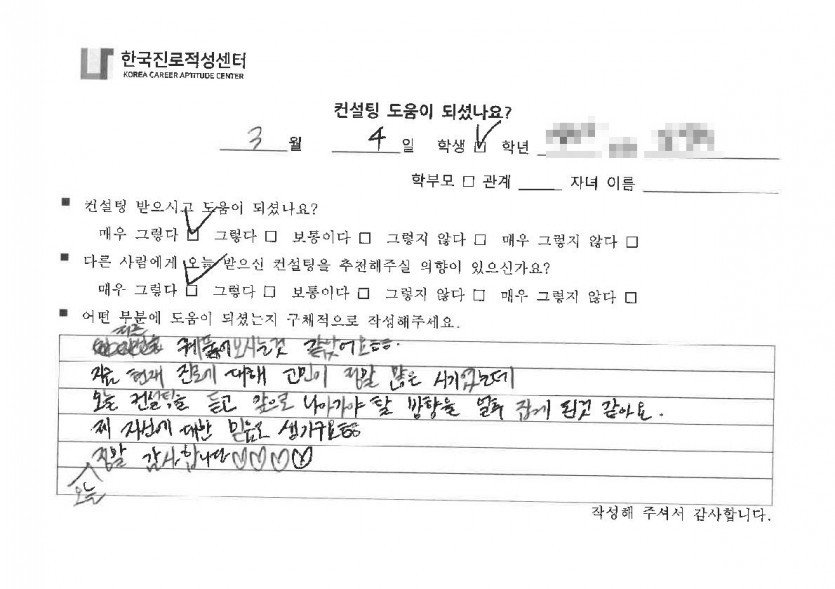 한국진로적성센터
KOREA CAREER APTITUDE CENTER
컨설팅 도움이 되셨나요?
3 월 4 일 학생 ☑ 학년
학부모 □ 관계 ____ 자녀 이름 ____
■ 컨설팅 받으시고 도움이 되셨나요?
매우 그렇다 ☑ 그렇다 □ 보통이다 □ 그렇지 않다 □ 매우 그렇지 않다 □
■ 다른 사람에게 오늘 받으신 컨설팅을 추천해주실 의향이 있으신가요?
매우 그렇다 ☑ 그렇다 □ 보통이다 □ 그렇지 않다 □ 매우 그렇지 않다 □
■ 어떤 부분에 도움이 되셨는지 구체적으로 작성해주세요.
저를 꿰뚫어보시는것 같았어요ㅎㅎ
지금 현재 진로에 대해 고민이 정말 많은 시기였는데
오늘 컨설팅을 듣고 앞으로 나아가야 할 방향을 얼추 잡게 된것 같아요.
제 자신에 대한 믿음도 생기구요ㅎㅎ
오늘 정말 감사합니다♡♡♡♡
작성해 주셔서 감사합니다.